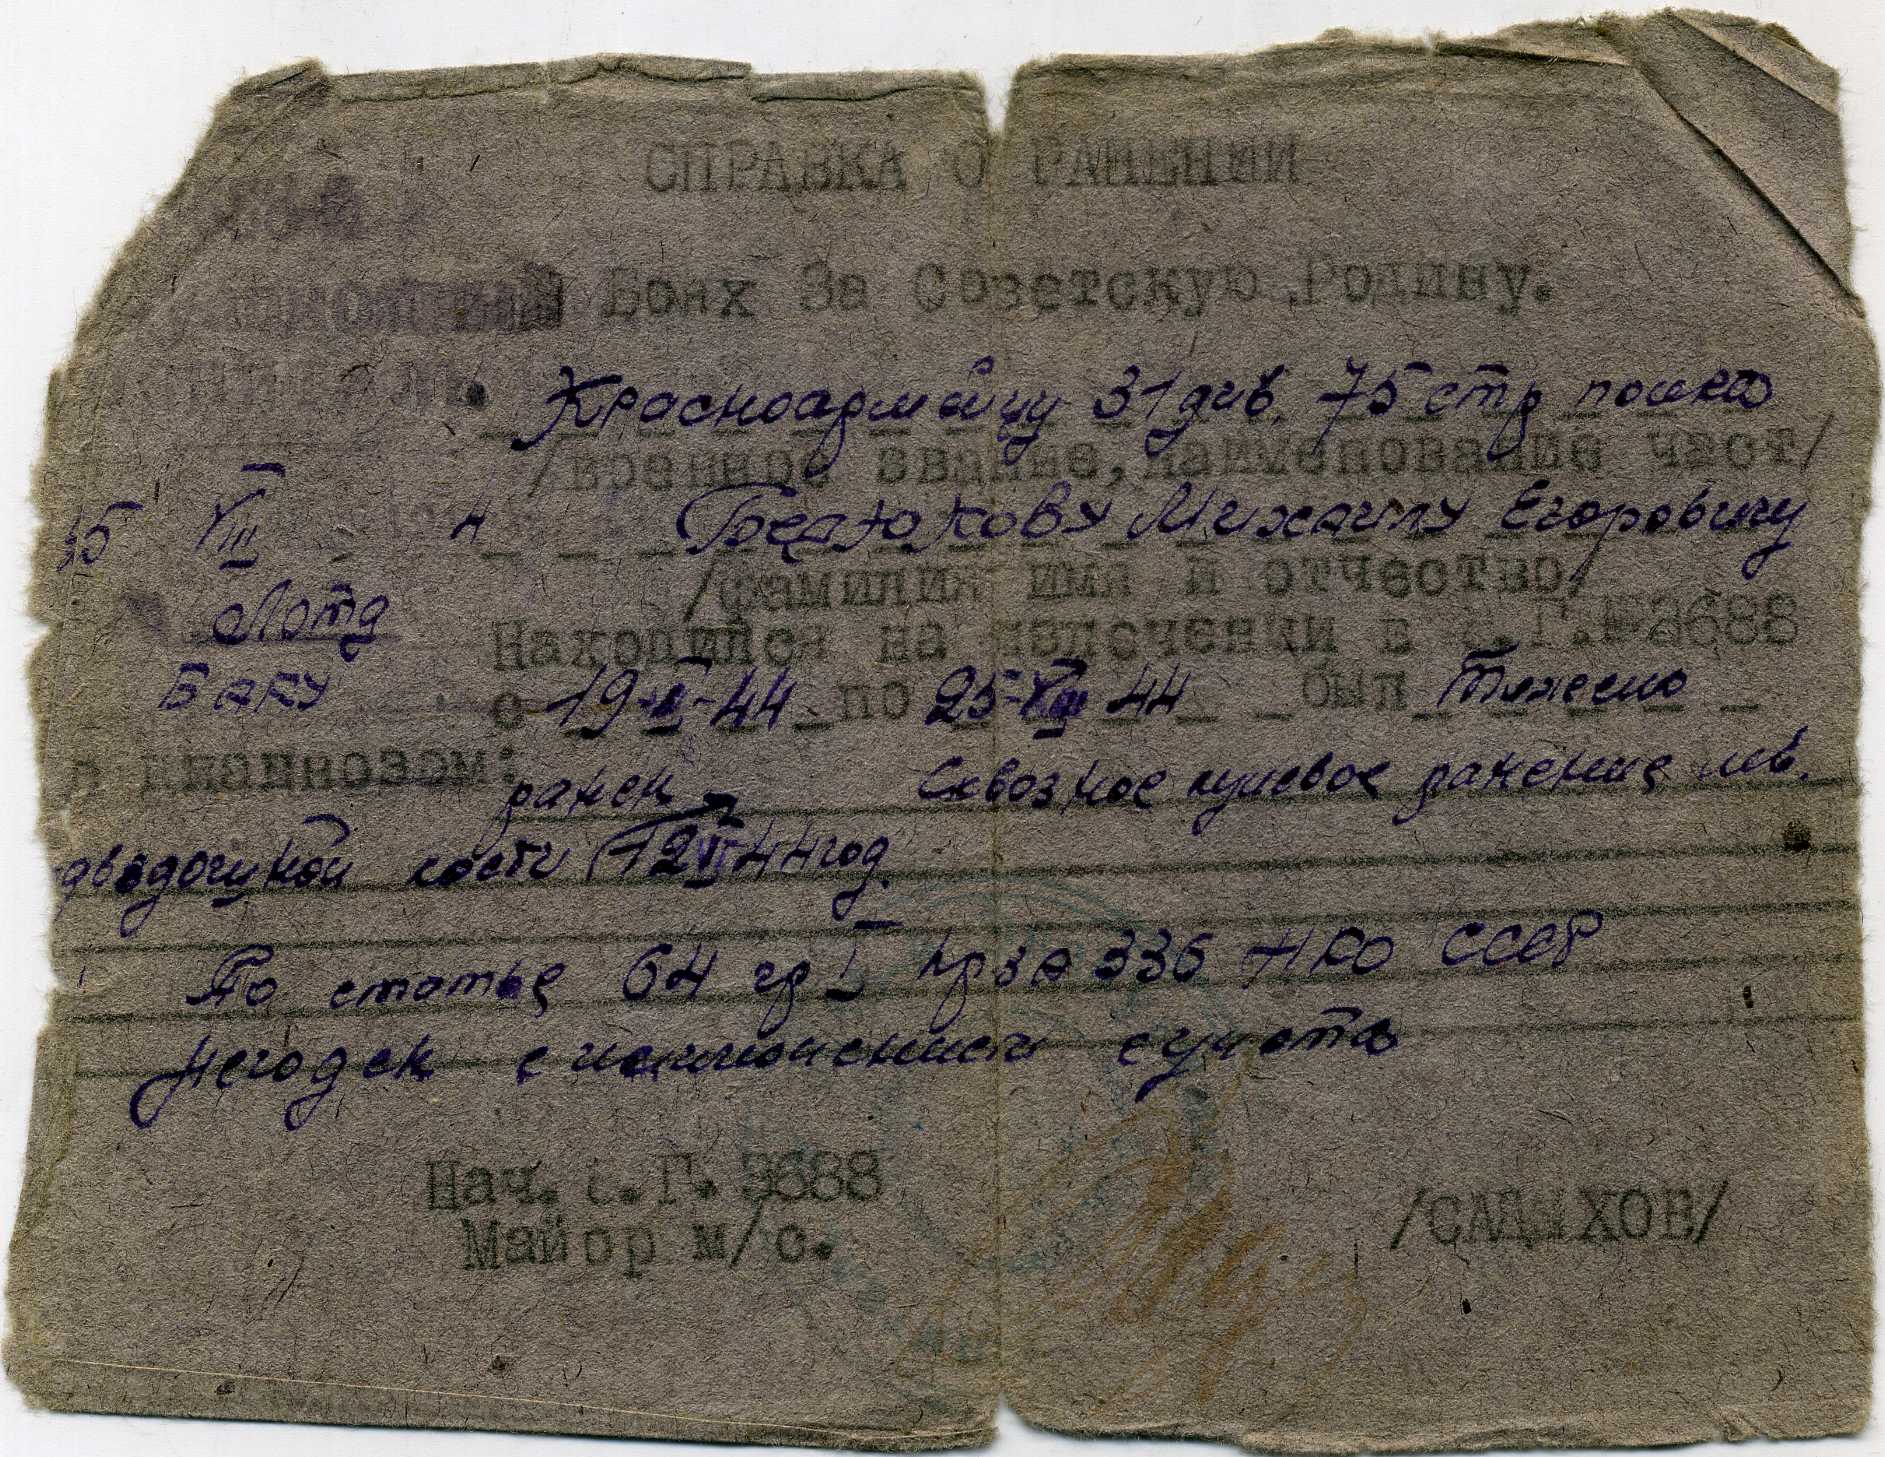 СПРАВКА О РАНЕНИИ
Боях За Советскую Родину.
Красноармейцу 31 див. 75 стр полка
/военное звание, наименование част/
15 VIII 4 Бедюкову Михаилу Егоровичу
/фамилия имя и отчество/
Находился на излечении в Г. № 3688
БАКУ
с 19-VI-44 по 25-VIII 44 был тяжело
ранен Сквозное пулевое ранение лев.
кости 12 VI 44 год.
По статье 64 гр I 336 НКО СССР
негоден с исключением с учета
Нач. Г. 3688
Майор м/с. /САДЫХОВ/